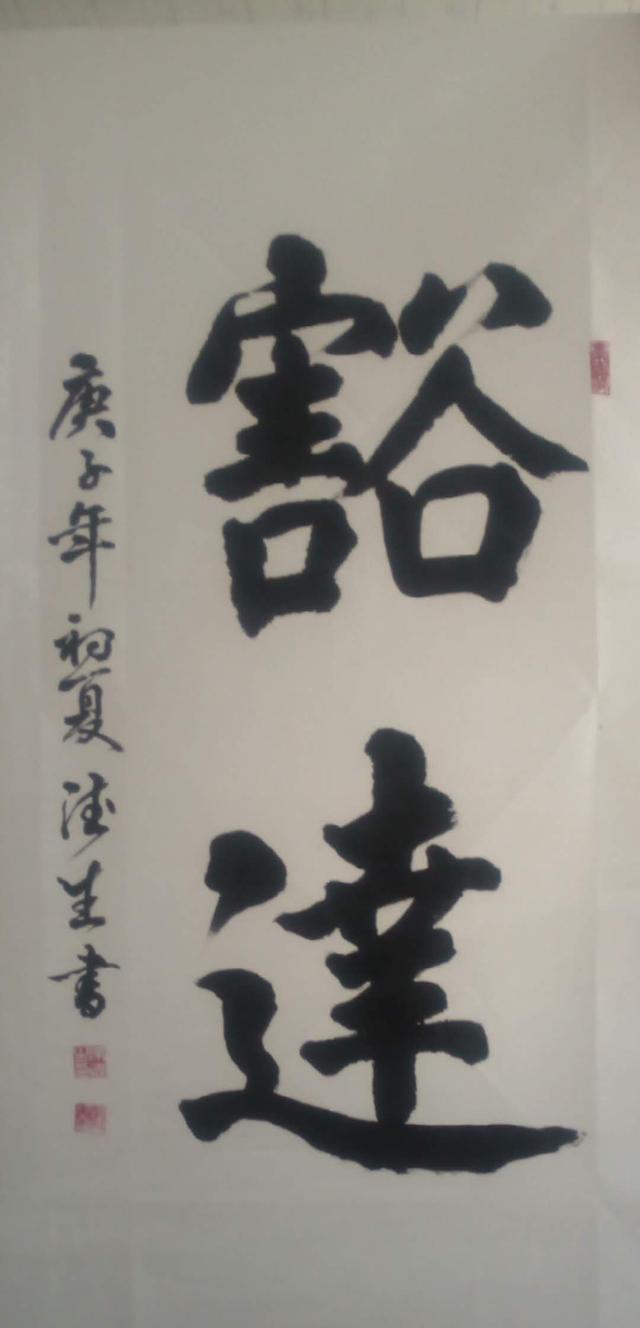 豁達
庚子年初夏德生書